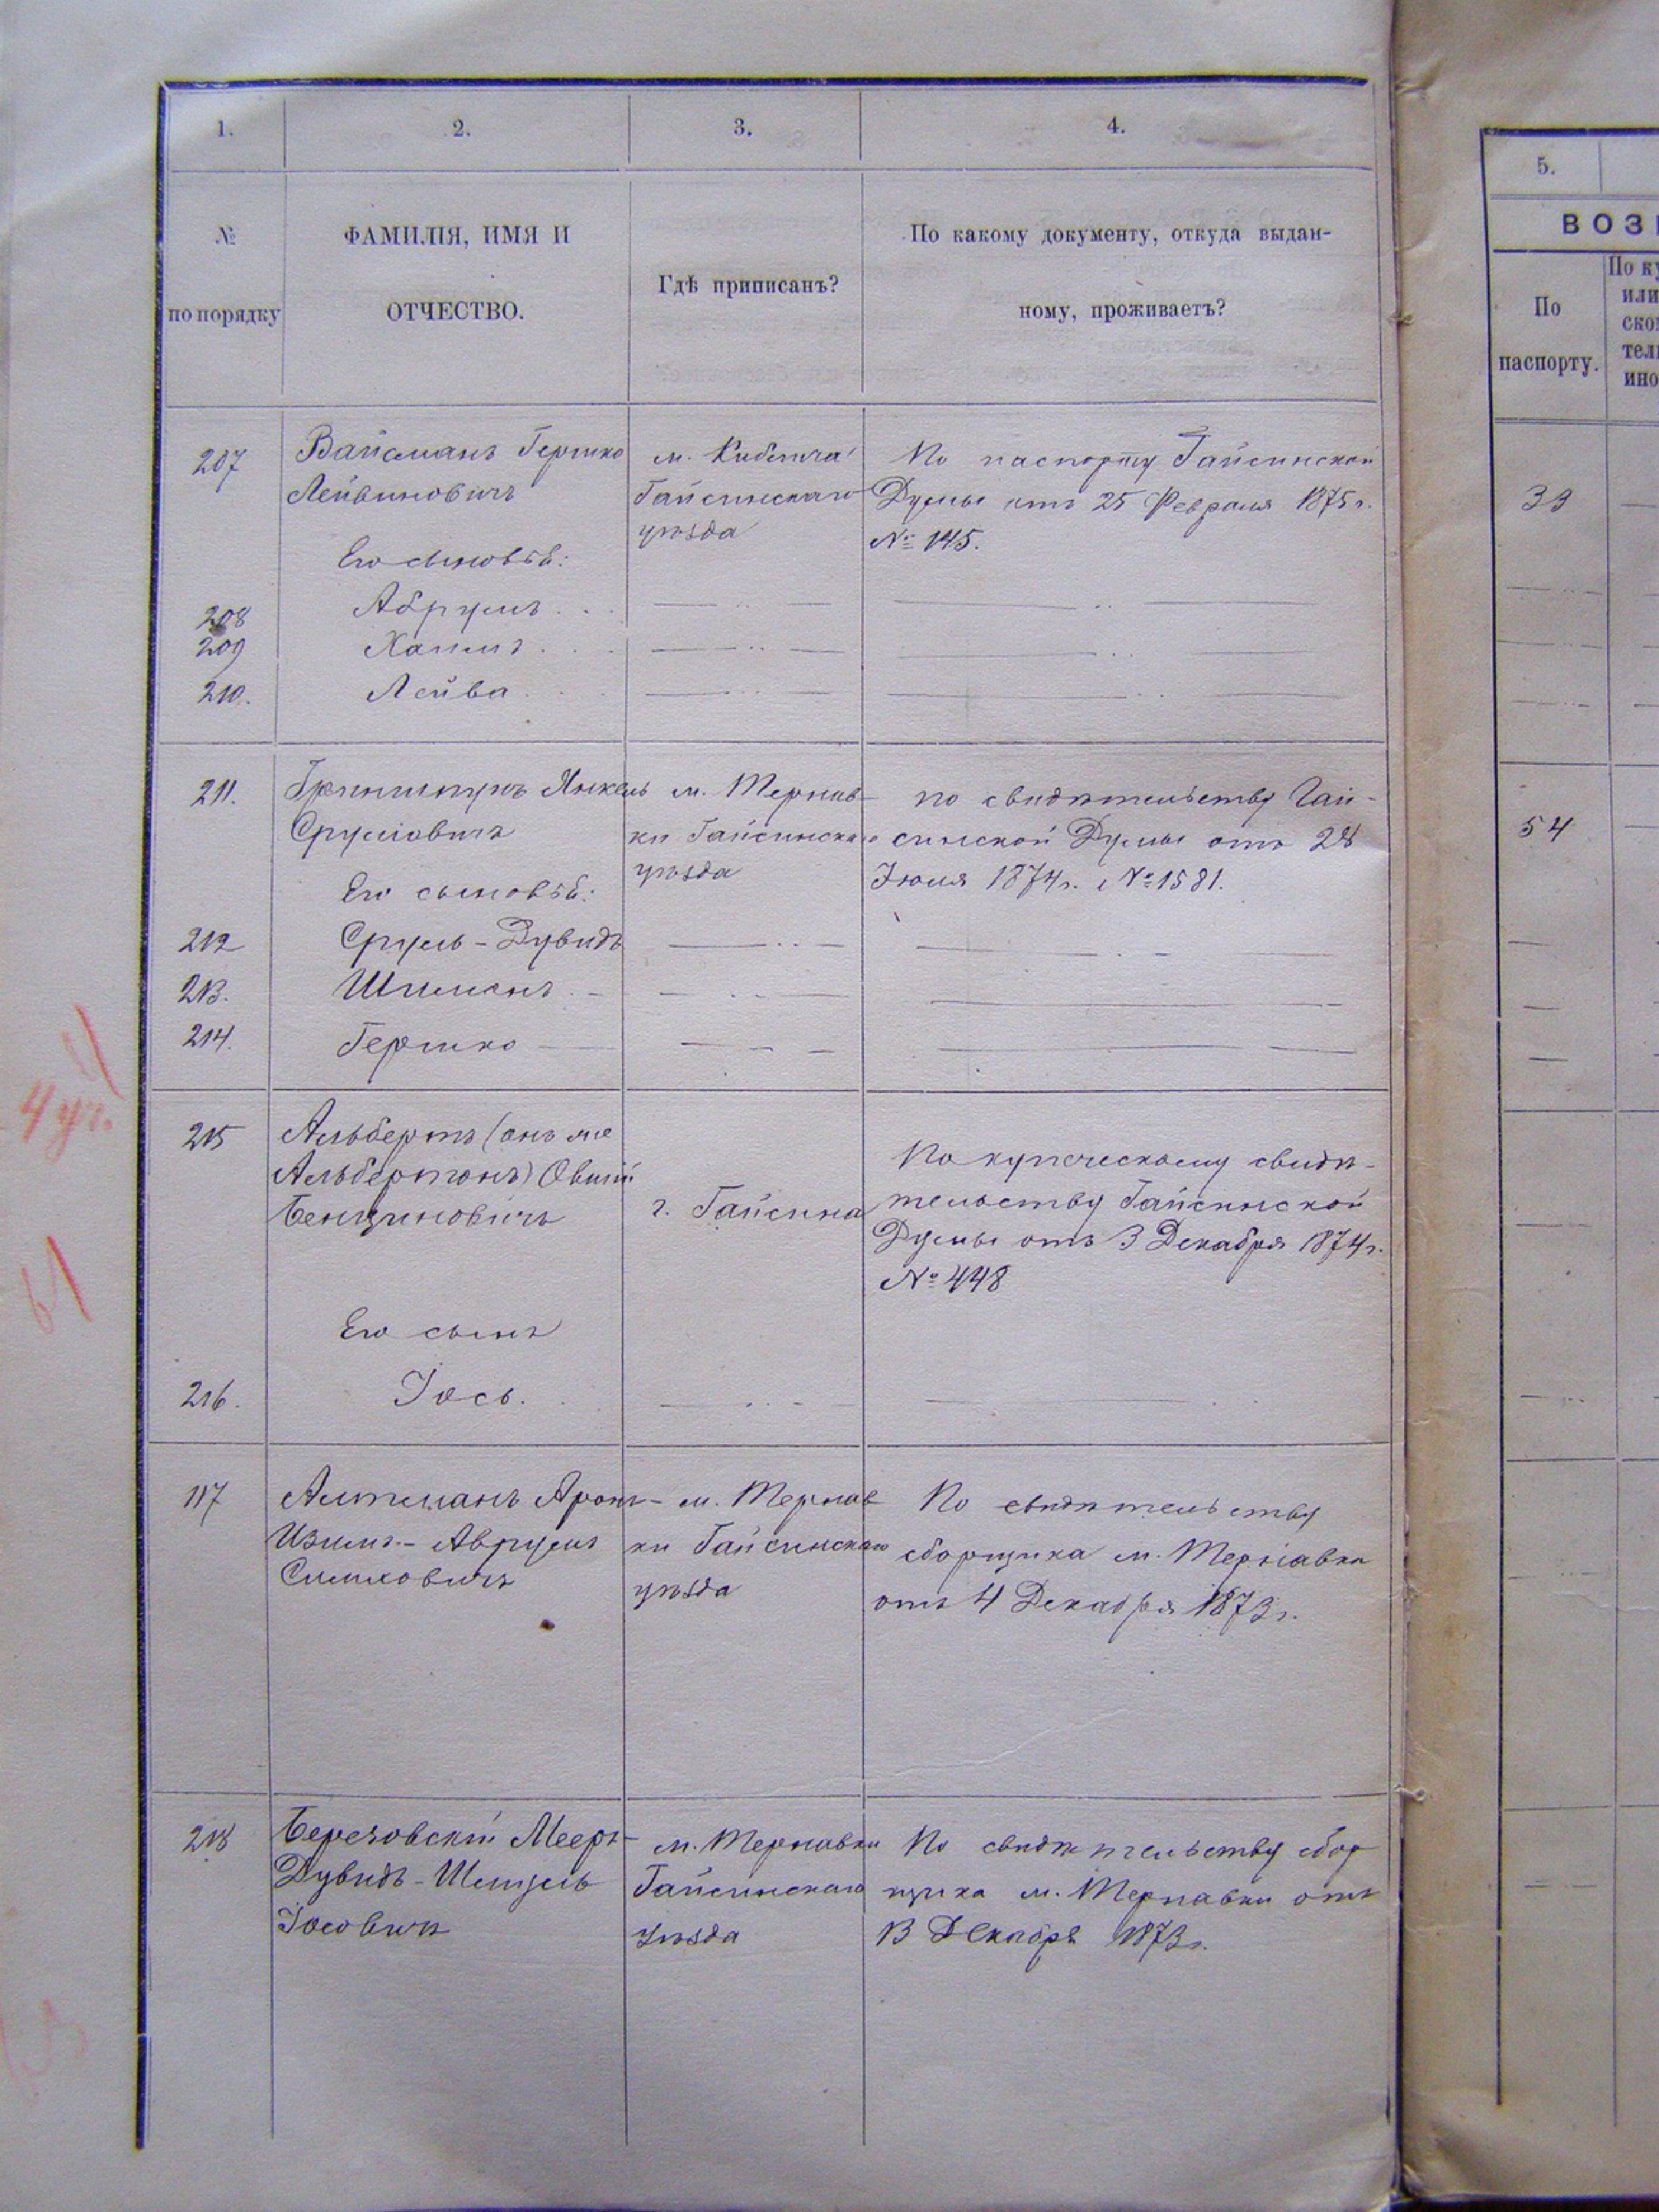 1. 2. 3. 4.
№ по порядку
ФАМИЛІЯ, ИМЯ И
ОТЧЕСТВО.
Гдѣ приписанъ?
По какому документу, откуда выдан-
ному, проживаетъ?
207 Вайсманъ Гершко
Лейвиновичъ
м. Кибличa
Гайсинскаго
уѣзда
По паспорту Гайсинской
Думы отъ 25 Февраля 1875 г.
№ 145.
Его сыновья:
208 Абрумъ
209 Хаимъ
210. Лейва
211. Гринштунъ Янкель
Сруліовичъ
м. Тернав-
ки Гайсинскаго
уѣзда
по свидѣтельству Гай-
синской Думы отъ 28
Іюля 1874 г. № 1581.
Его сыновья:
212 Сруль-Дувидъ
213. Шимонъ
214. Гершко
215 Альбертъ (онъ же
Альбертонъ) Овшій
Бенціновичъ
г. Гайсина
По купеческому свидѣ-
тельству Гайсинской
Думы отъ 3 Декабря 1874 г.
№ 448
Его сынъ
216. Іось.
117 Алтманъ Аронъ-
Изилъ-Аврумъ
Симховичъ
м. Тернав
ки Гайсинскаго
уѣзда
По свидѣтельству
сборщика м. Тернавки
отъ 4 Декабря 1873 г.
218 Березовскій Мееръ-
Дувидъ-Шмуль
Іосовичъ
м. Тернавки
Гайсинскаго
уѣзда
По свидѣтельству сбор
щика м. Тернавки отъ
13 Декабря 1873 г.
4 уч.
61
5.
ВОЗ
По
паспорту.
По ку
или
ско
тел
ино
33
54